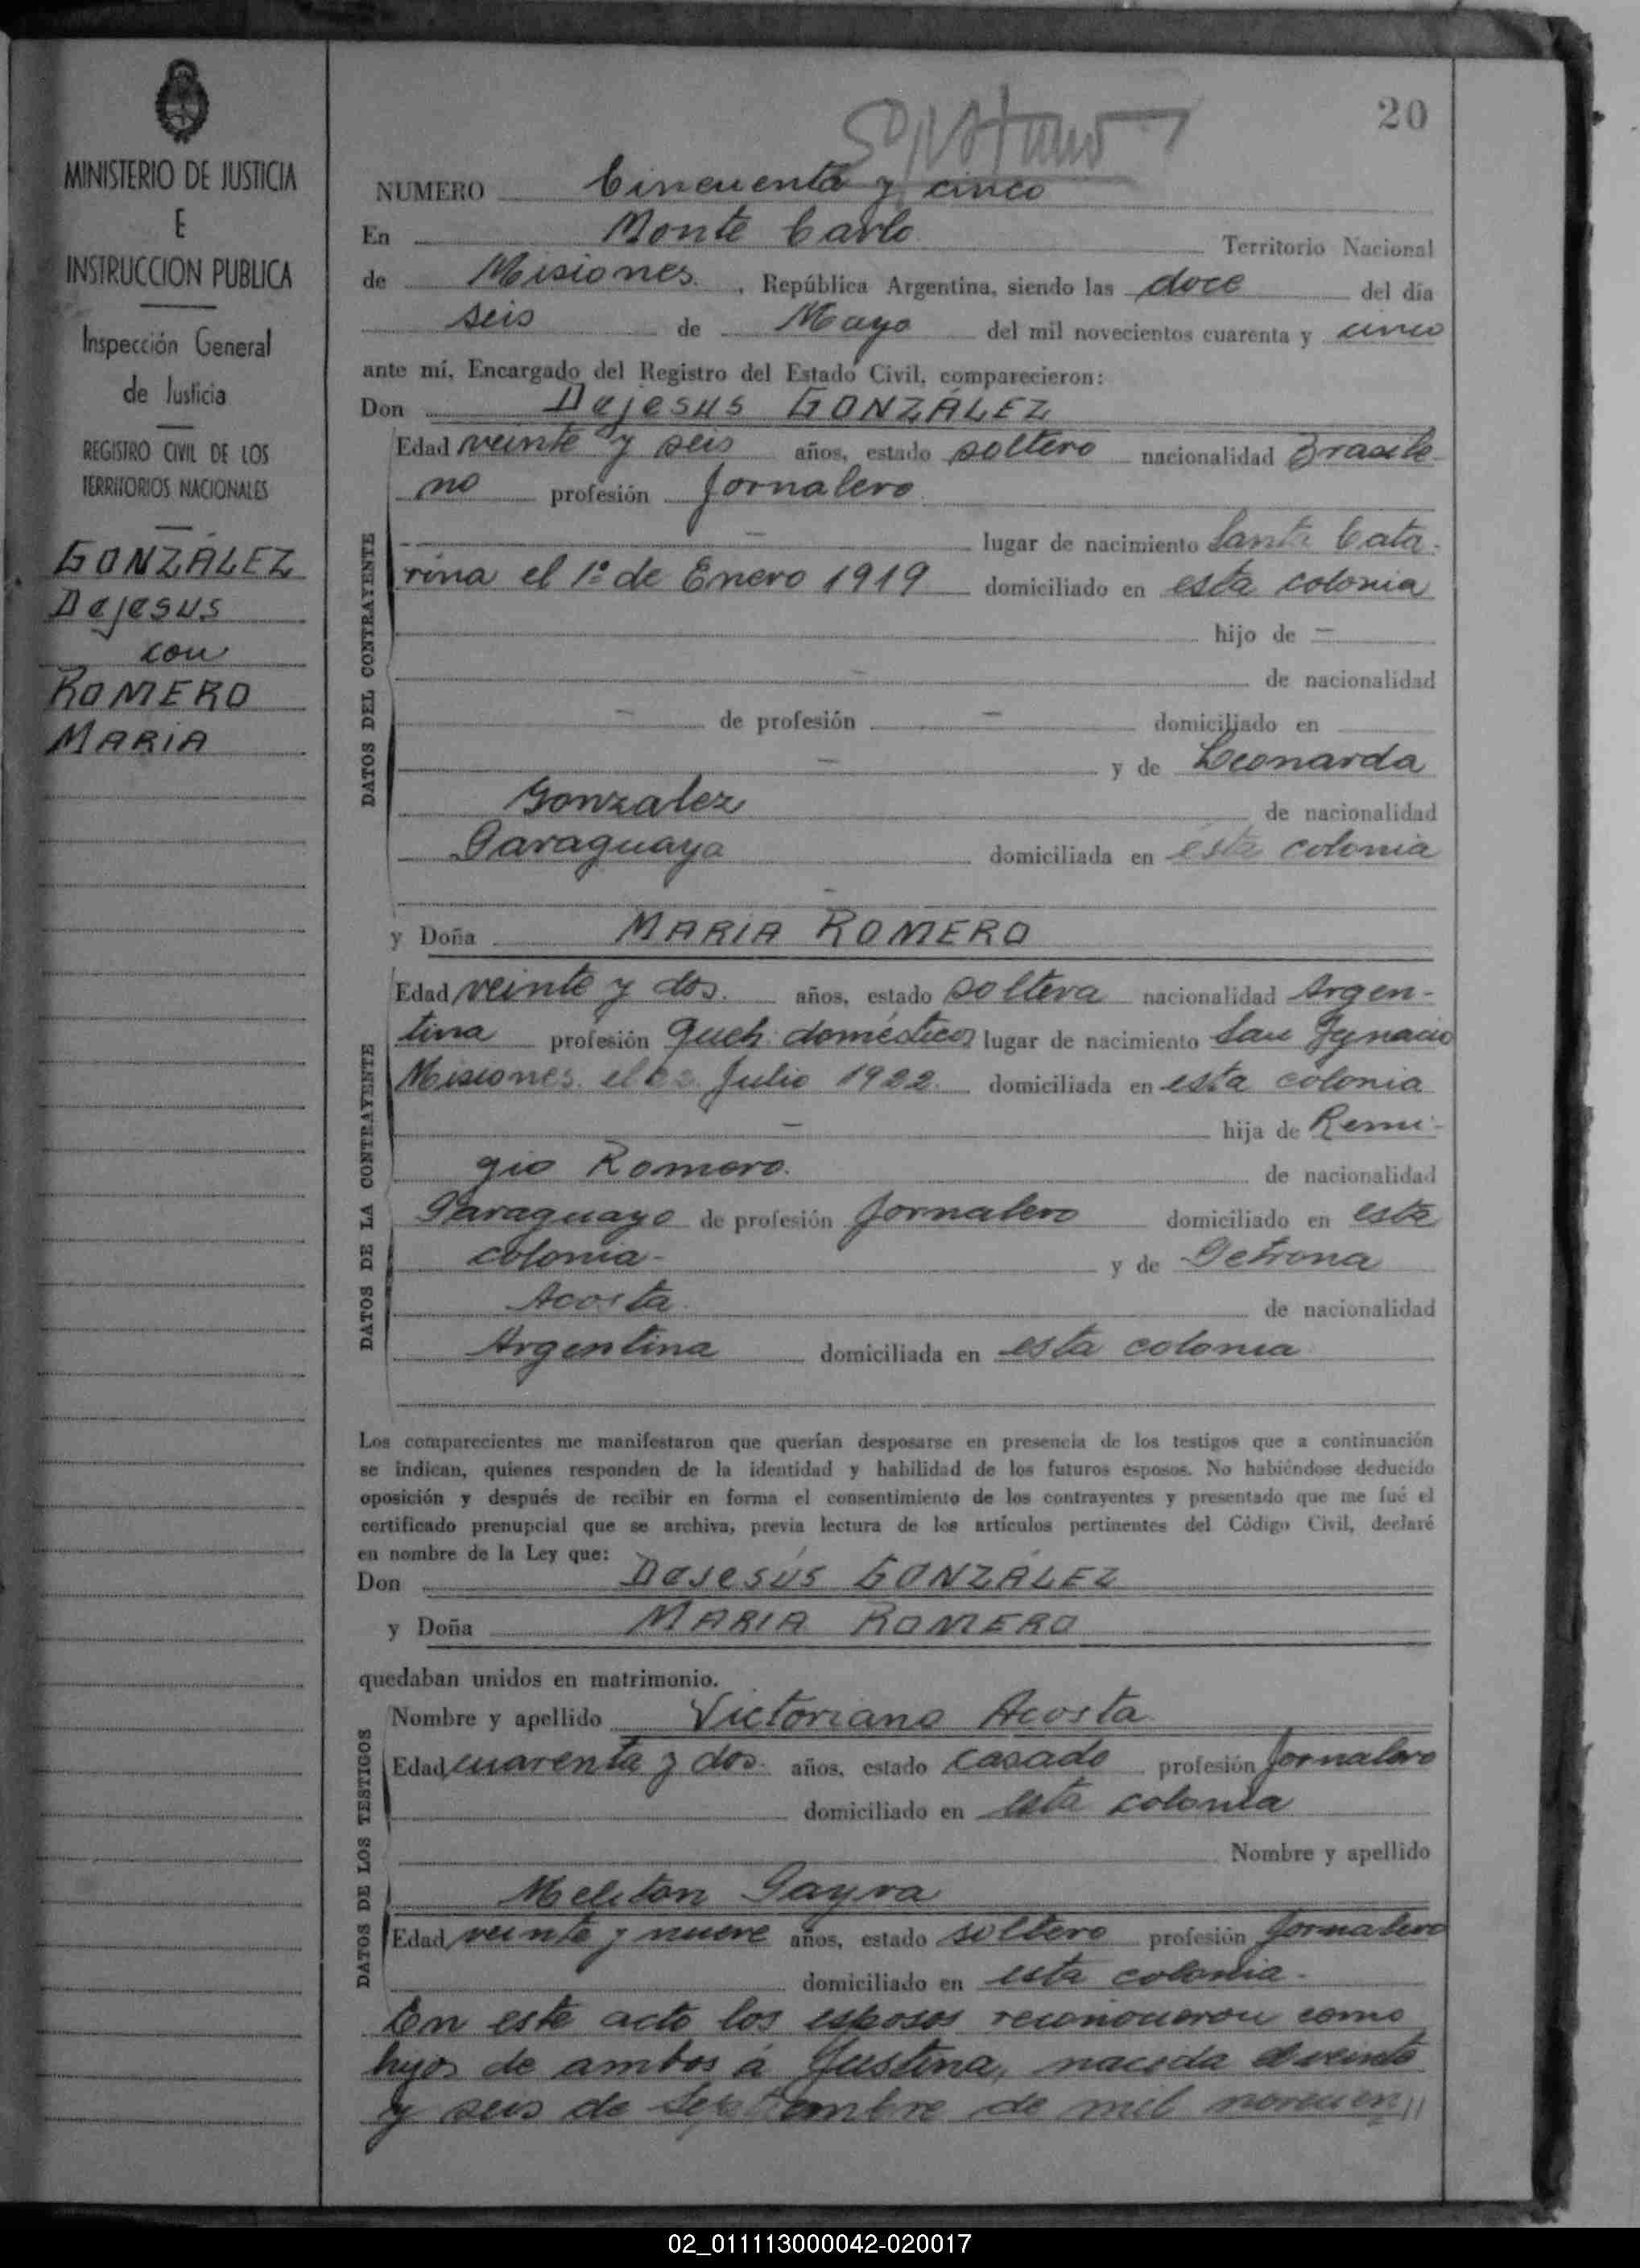 MINISTERIO DE JUSTICIA
E
INSTRUCCION PUBLICA
Inspección General
de Justicia
REGISTRO CIVIL DE LOS
TERRITORIOS NACIONALES
GONZÁLEZ
Dejesus
con
ROMERO
MARIA
20
NUMERO Cincuenta y cinco
En Monte Carlo Territorio Nacional
de Misiones, República Argentina, siendo las doce del día
seis de Mayo del mil novecientos cuarenta y cinco
ante mí, Encargado del Registro del Estado Civil, comparecieron:
Don Dejesus GONZÁLEZ
DATOS DEL CONTRAYENTE
Edad veinte y seis años, estado soltero nacionalidad Brasile-
no profesión Jornalero
— lugar de nacimiento Santa Cata-
rina el 1º de Enero 1919 domiciliado en esta colonia
hijo de —
— de nacionalidad
— de profesión — domiciliado en
— y de Leonarda
Gonzalez de nacionalidad
Paraguaya domiciliada en esta colonia
—
y Doña MARIA ROMERO
DATOS DE LA CONTRAYENTE
Edad veinte y dos. años, estado soltera nacionalidad Argen-
tina profesión Queh. domésticos lugar de nacimiento San Ygnacio
Misiones el Julio 1922. domiciliada en esta colonia
— hija de Remi-
gio Romero. de nacionalidad
Paraguayo de profesión Jornalero domiciliado en esta
colonia- y de Petrona
Acosta. de nacionalidad
Argentina domiciliada en esta colonia
Los comparecientes me manifestaron que querían desposarse en presencia de los testigos que a continuación
se indican, quienes responden de la identidad y habilidad de los futuros esposos. No habiéndose deducido
oposición y después de recibir en forma el consentimiento de los contrayentes y presentado que me fué el
certificado prenupcial que se archiva, previa lectura de los artículos pertinentes del Código Civil, declaré
en nombre de la Ley que:
Don DeJesús GONZÁLEZ
y Doña MARIA ROMERO
quedaban unidos en matrimonio.
DATOS DE LOS TESTIGOS
Nombre y apellido Victoriano Acosta
Edad cuarenta y dos. años, estado casado profesión Jornalero
domiciliado en esta colonia
Nombre y apellido
Meliton Gayra
Edad veinte y nueve años, estado soltero profesión Jornalero
domiciliado en esta colonia.
En este acto los esposos reconocieron como
hijos de ambos á Justina, nacida el veinte
y seis de Septiembre de mil novecien,,
02_011113000042-020017